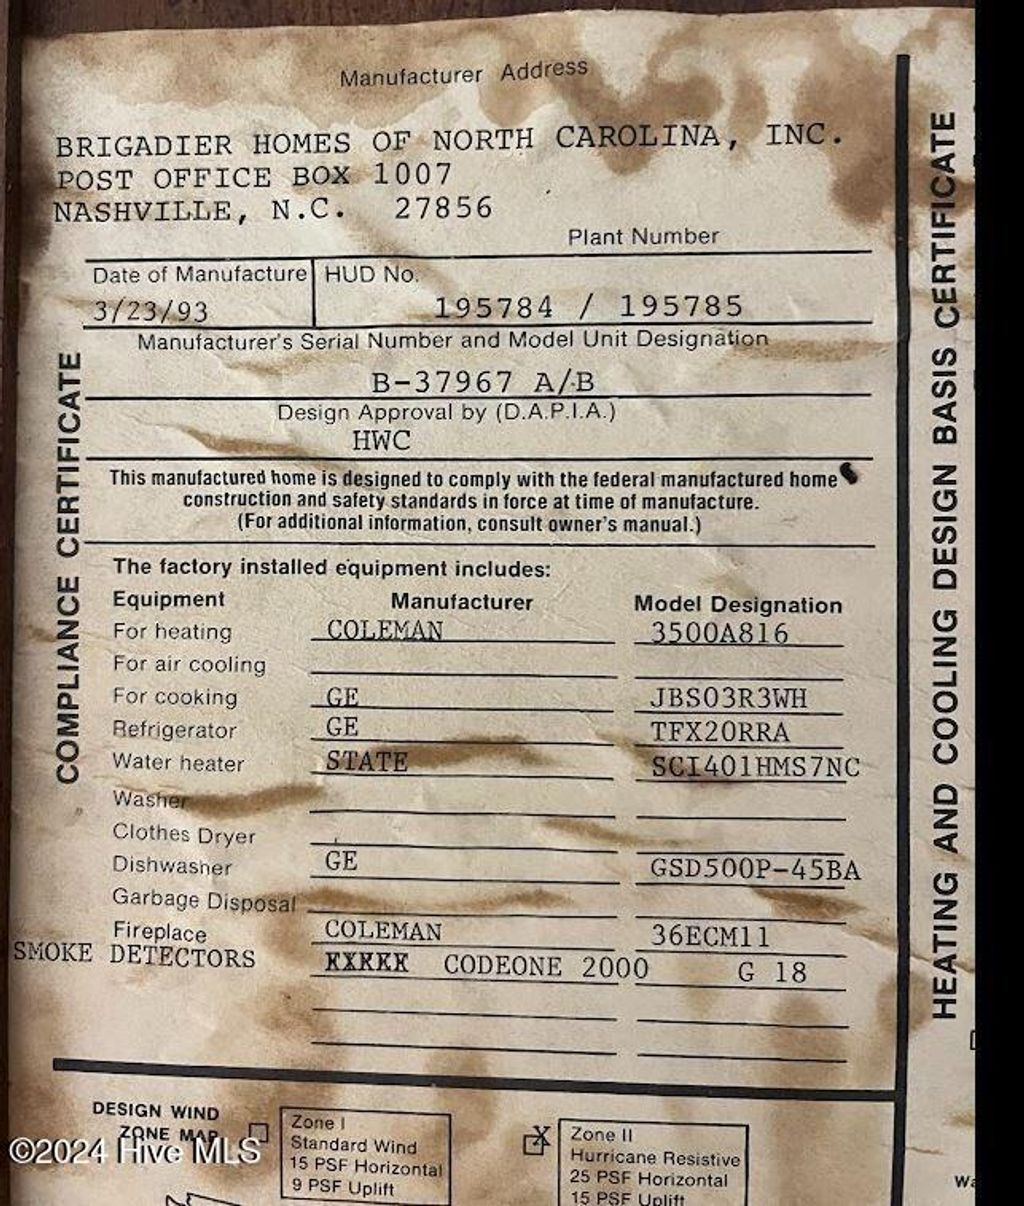 Manufacturer Address
BRIGADIER HOMES OF NORTH CAROLINA, INC.
POST OFFICE BOX 1007
NASHVILLE, N.C. 27856
Plant Number
Date of Manufacture HUD No.
3/23/93 195784 / 195785
Manufacturer's Serial Number and Model Unit Designation
B-37967 A/B
Design Approval by (D.A.P.I.A.)
HWC
This manufactured home is designed to comply with the federal manufactured home
construction and safety standards in force at time of manufacture.
(For additional information, consult owner's manual.)
COMPLIANCE CERTIFICATE
The factory installed equipment includes:
Equipment Manufacturer Model Designation
For heating COLEMAN 3500A816
For air cooling
For cooking GE JBS03R3WH
Refrigerator GE TFX20RRA
Water heater STATE SCI401HMS7NC
Washer
Clothes Dryer
Dishwasher GE GSD500P-45BA
Garbage Disposal
Fireplace COLEMAN 36ECM11
SMOKE DETECTORS CODEONE 2000 G 18
HEATING AND COOLING DESIGN BASIS CERTIFICATE
DESIGN WIND
ZONE MAP
Zone I
Standard Wind
15 PSF Horizontal
9 PSF Uplift
X
Zone II
Hurricane Resistive
25 PSF Horizontal
15 PSF Uplift
©2024 Hive MLS